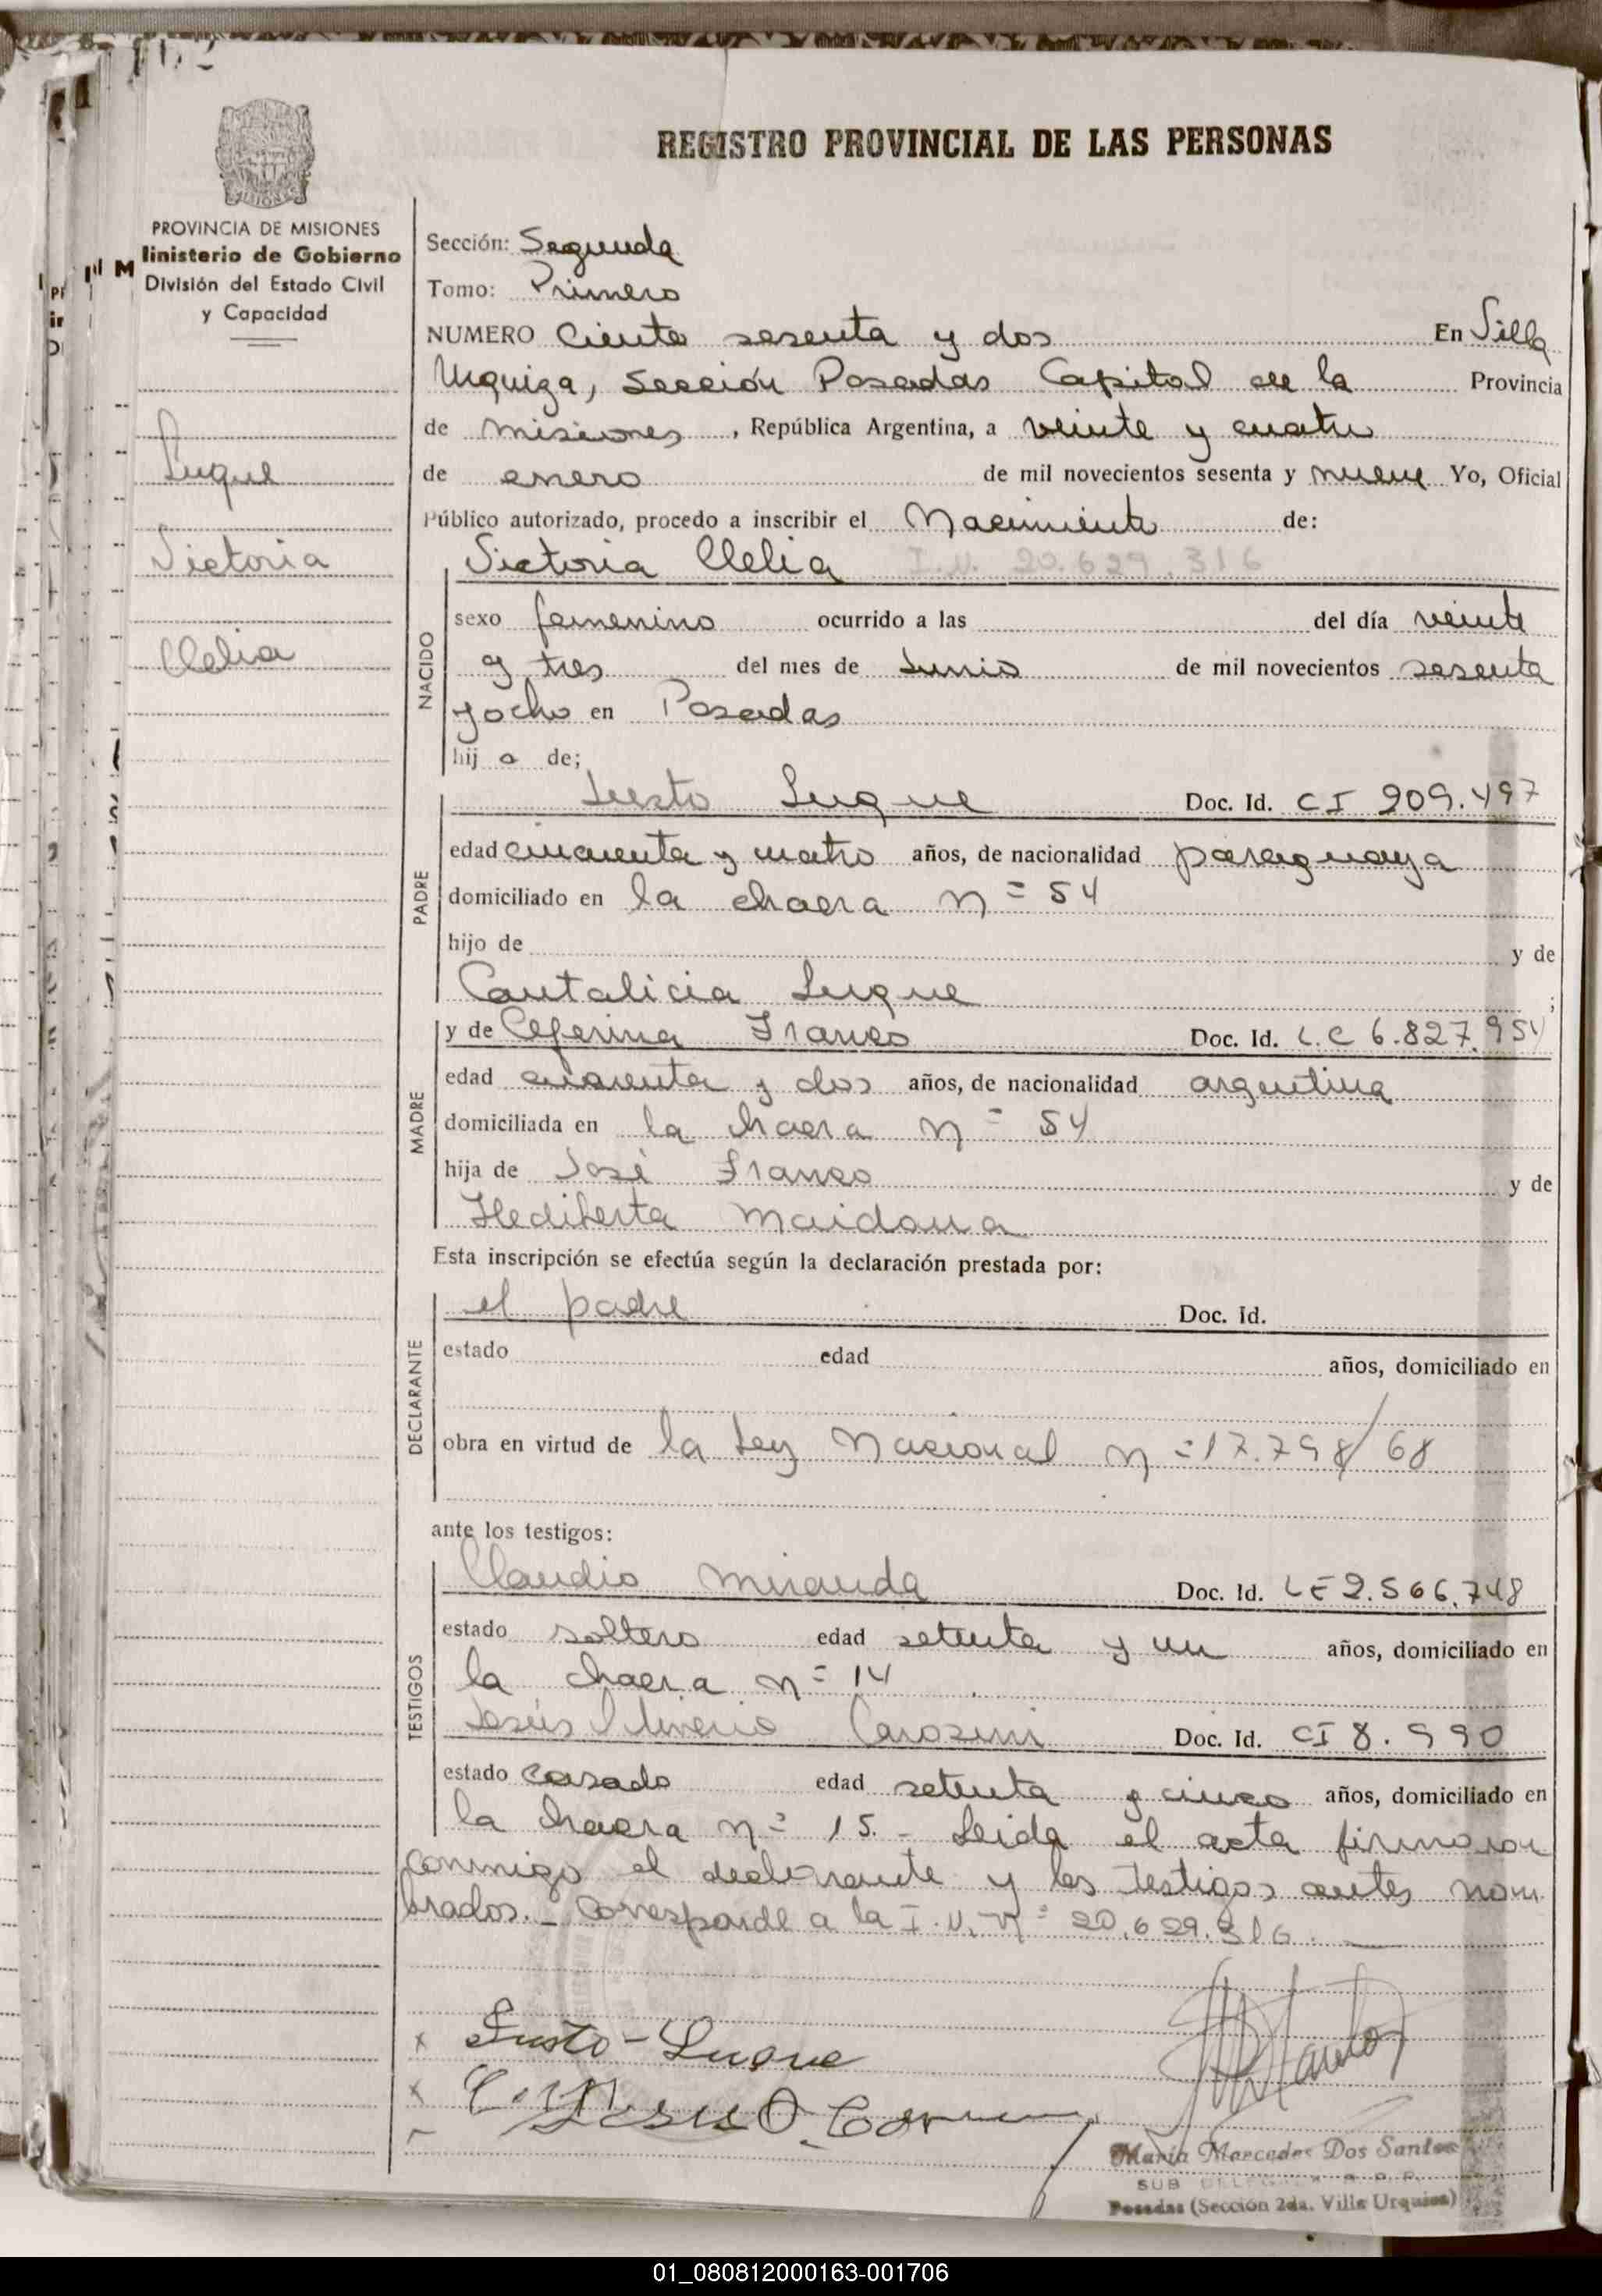 REGISTRO PROVINCIAL DE LAS PERSONAS
PROVINCIA DE MISIONES
Ministerio de Gobierno
División del Estado Civil
y Capacidad
Luque
Victoria
Clelia
Sección: Segunda
Tomo: Primero
NUMERO Ciento sesenta y dos En Villa
Urquiza, Sección Posadas Capital de la Provincia
de misiones, República Argentina, a veinte y cuatro
de enero de mil novecientos sesenta y nueve Yo, Oficial
Público autorizado, procedo a inscribir el Nacimiento de:
Victoria Clelia I.N. 20.629.316
NACIDO
sexo femenino ocurrido a las del día veinte
y tres del mes de Junio de mil novecientos sesenta
y ocho en Posadas
hij a de;
PADRE
Justo Luque Doc. Id. CI 909.497
edad cincuenta y cuatro años, de nacionalidad paraguaya
domiciliado en la chacra n= 54
hijo de y de
Cantalicia Luque ;
MADRE
y de Ceferina Franco Doc. Id. L.C 6.827.954
edad cuarenta y dos años, de nacionalidad argentina
domiciliada en la chacra n= 54
hija de José Franco y de
Hediberta Maidana
Esta inscripción se efectúa según la declaración prestada por:
DECLARANTE
el padre Doc. Id.
estado edad años, domiciliado en
obra en virtud de la Ley Nacional n=17.798/68
ante los testigos:
TESTIGOS
Claudio Miranda Doc. Id. LE 2.566.748
estado soltero edad setenta y un años, domiciliado en
la chacra n= 14
Jesús Doc. Id. CI 8.990
estado casado edad setenta y cinco años, domiciliado en
la chacra n= 15.- Leida el acta firmaron
conmigo el declarante y los testigos antes nom
brados.- Corresponde a la I.N. n= 20.629.316.
x Justo-Luque
x
Maria Mercedes Dos Santos
SUB
Posadas (Sección 2da. Villa Urquiza)
01_080812000163-001706